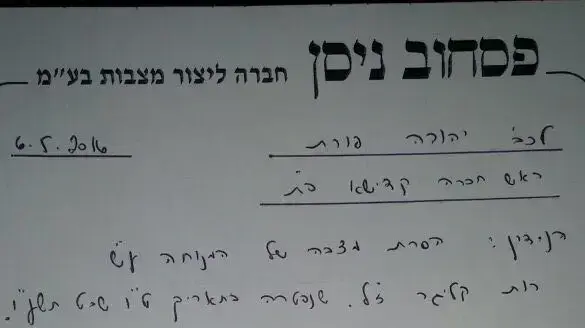 פסחוב ניסן חברה ליצור מצבות בע"מ
6.5.2016
לכב' יהודה פורת
ראש חברה קדישא פ"ת
הנידון: הסרת מצבה של המנוחה ע"ש
רות קליגר ז"ל. שנפטרה בתאריך ט"ו שבט תשע"ו.